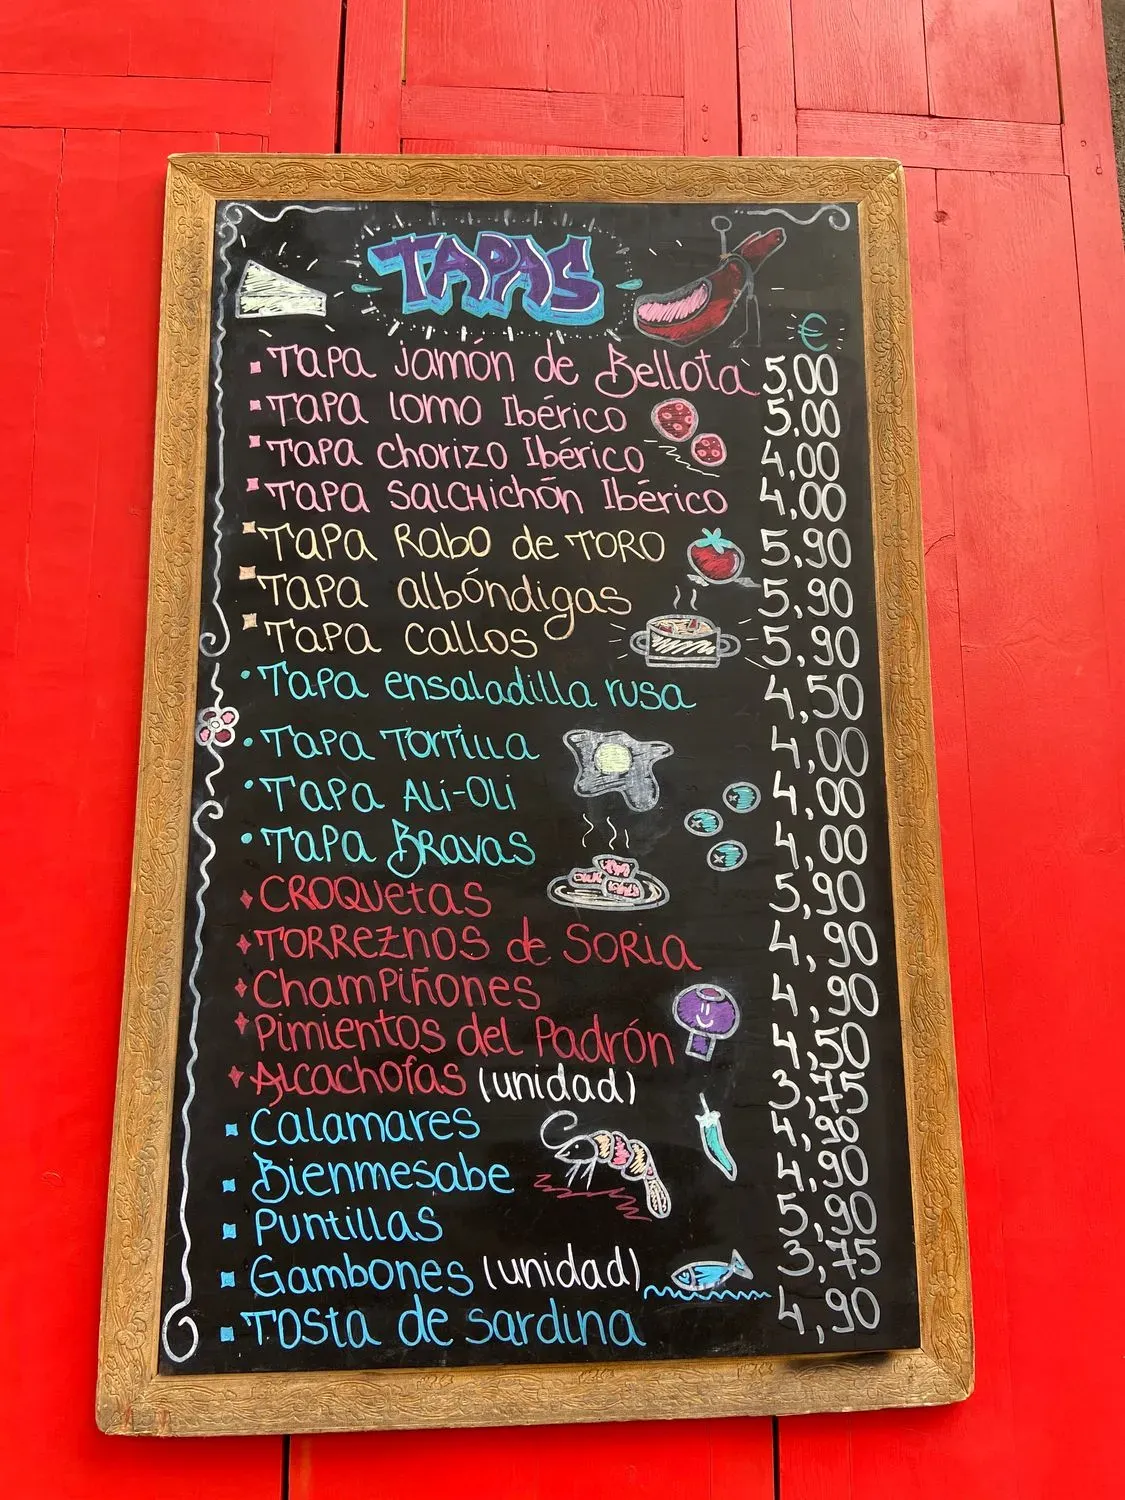 TAPAS
€
TAPA jamón de Bellota 5,00
TAPA lomo Ibérico 5,00
TAPA chorizo Ibérico 4,00
TAPA SALCHichón Ibérico 4,00
TAPA RABO de TORO 5,90
TAPA albóndigas 5,90
TAPA CALLOS 5,90
TAPA ensaladilla rusa 4,50
TAPA TORTILLA 4,00
TAPA ALi-OLi 4,00
TAPA BRAVAS 4,00
CROQUETAS 5,90
TORREZNOS de SORIA 4,90
ChamPiñones 4,90
Pimientos del Padrón 4,50
Alcachofas (unidad) 3,75
Calamares 4,90
Bienmesabe 4,90
Puntillas 5,90
Gambones (unidad) 3,75
Tosta de sardina 4,90